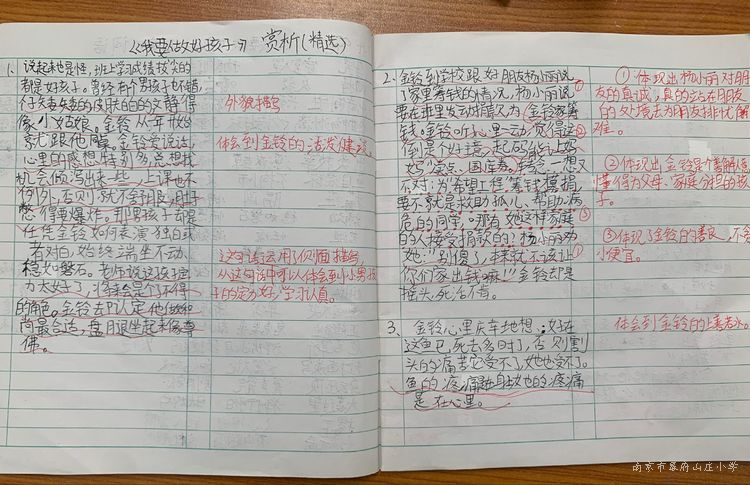 《我要做好孩子》 赏析(精选)
1. 说起来也是怪,班上学习成绩拔尖的
都是好孩子。曾经有个男孩子也不错,
像小姑娘。金铃从一年开始
就跟他同桌。金铃爱说话,
心里的感想特别多,总想找
机会倾泻出来一些,上课也不
例外,否则就不会
憋得要爆炸。那男孩子却是
任凭金铃如何表演独白或
者对白,始终端坐不动、
稳如磐石。老师说这孩子定
力太好了,将来会是个不得
的角色。金铃却认定他做和
尚最合适,盘腿坐起来像尊
佛。
外貌描写
体会到金铃的活泼健谈
这句话运用了侧面描写,
从这句话中可以体会到小男孩
子的定力好,学习认真。
2. 金铃到学校跟好朋友杨小丽说
了家里筹钱的情况,杨小丽说
要在班里发动捐款为金铃家筹
钱。金铃听心里一动,觉得这
倒是个好主意,起码能让妈
妈少卖点国库券。转念一想又
不对:为希望工程筹钱募捐,
要不就是救助孤儿、帮助病
危的同学,哪有她这样家庭
的人接受捐款的?杨小丽劝
她:“别傻了,本来就不该让
你们家出钱嘛!”金铃却是
摇头,死活不肯。
①体现出杨小丽对朋
友的真诚,真的站在朋友
的处境去为朋友排忧解
难。
②体现出金铃是个善解人意
懂得为父母、家庭分担的孩
子。
③体现了金铃的善良,不会
小便宜。
3. 金铃心里庆幸地想:好在
这鱼已死去多时了,否则割
头的痛苦它受不了,她也受不了。
鱼的疼痛是在身上,她的疼痛
是在心里。
体会到金铃的上善若水。
南京市翠府山庄小学